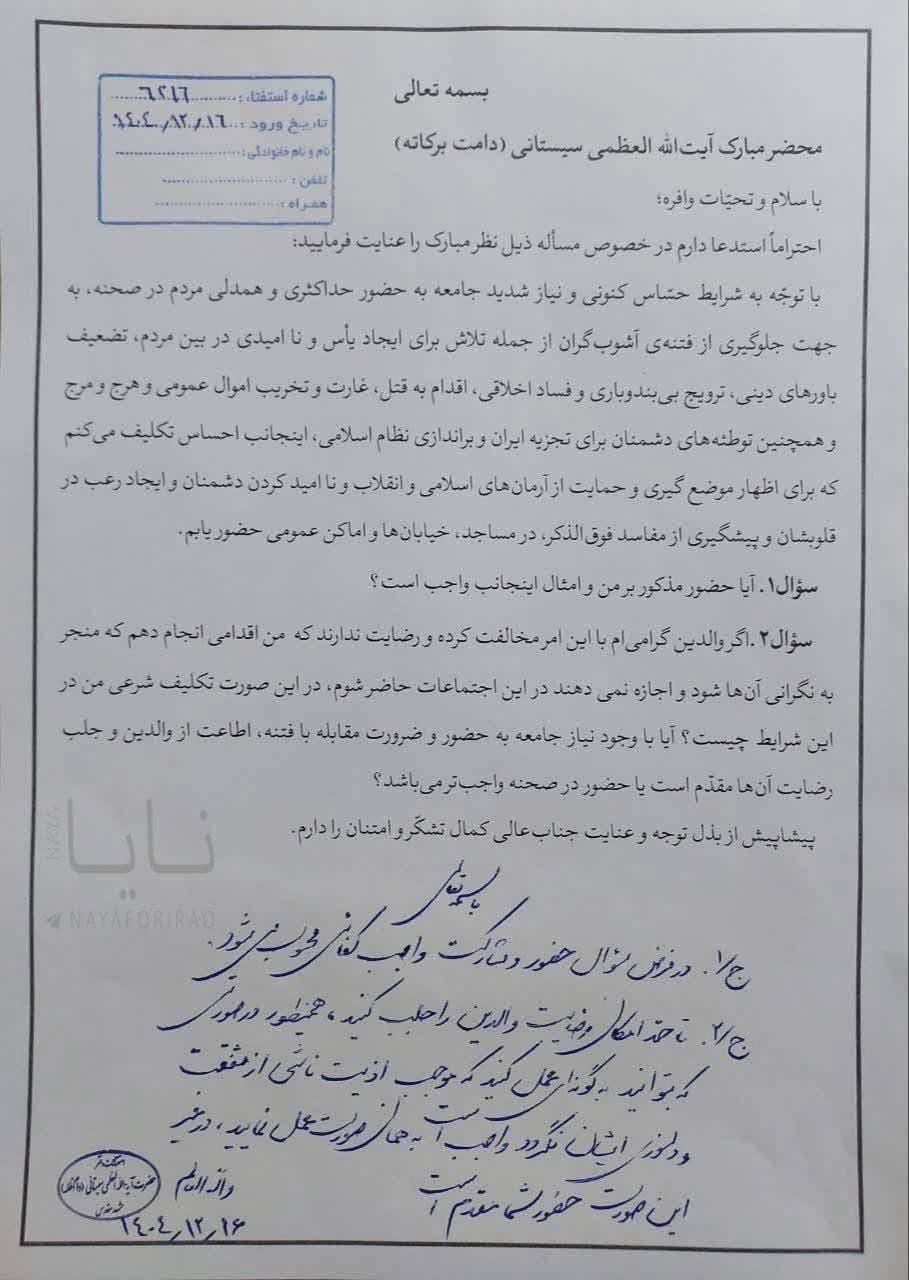 بسمه تعالی
شماره استفتاء: ۶۲۱۶
تاریخ ورود: ۱۴۰۴/۱۲/۱۶
نام و نام خانوادگی:
تلفن:
همراه:
محضر مبارک آیت‌الله العظمی سیستانی (دامت برکاته)
با سلام و تحیّات وافره؛
احتراماً استدعا دارم در خصوص مسأله ذیل نظر مبارک را عنایت فرمایید:
با توجّه به شرایط حسّاس کنونی و نیاز شدید جامعه به حضور حداکثری و همدلی مردم در صحنه، به
جهت جلوگیری از فتنه‌ی آشوب‌گران از جمله تلاش برای ایجاد یأس و نا امیدی در بین مردم، تضعیف
باورهای دینی، ترویج بی‌بندوباری و فساد اخلاقی، اقدام به قتل، غارت و تخریب اموال عمومی و هرج و مرج
و همچنین توطئه‌های دشمنان برای تجزیه ایران و براندازی نظام اسلامی، اینجانب احساس تکلیف می‌کنم
که برای اظهار موضع گیری و حمایت از آرمان‌های اسلامی و انقلاب و نا امید کردن دشمنان و ایجاد رعب در
قلوبشان و پیشگیری از مفاسد فوق‌الذکر، در مساجد، خیابان‌ها و اماکن عمومی حضور یابم.
سؤال۱. آیا حضور مذکور بر من و امثال اینجانب واجب است؟
سؤال۲. اگر والدین گرامی‌ام با این امر مخالفت کرده و رضایت ندارند که من اقدامی انجام دهم که منجر
به نگرانی آن‌ها شود و اجازه نمی دهند در این اجتماعات حاضر شوم، در این صورت تکلیف شرعی من در
این شرایط چیست؟ آیا با وجود نیاز جامعه به حضور و ضرورت مقابله با فتنه، اطاعت از والدین و جلب
رضایت آن‌ها مقدّم است یا حضور در صحنه واجب‌تر می‌باشد؟
پیشاپیش از بذل توجه و عنایت جناب‌عالی کمال تشکّر و امتنان را دارم.
نایا
NAYA
NAYAFORIRAQ
باسمه تعالی
ج/۱. در فرض سؤال حضور و مشارکت واجب کفائی محسوب می شود.
ج/۲. تا حد امکان رضایت والدین را جلب کنید، همینطور در صورتی
که بتوانید به گونه‌ای عمل کنید که موجب اذیت ناشی از شفقت
و دلسوزی ایشان نگردد واجب است به همان صورت عمل نمایید، در غیر
این صورت حضور شما مقدم است
والله العالم
۱۴۰۴/۱۲/۱۶